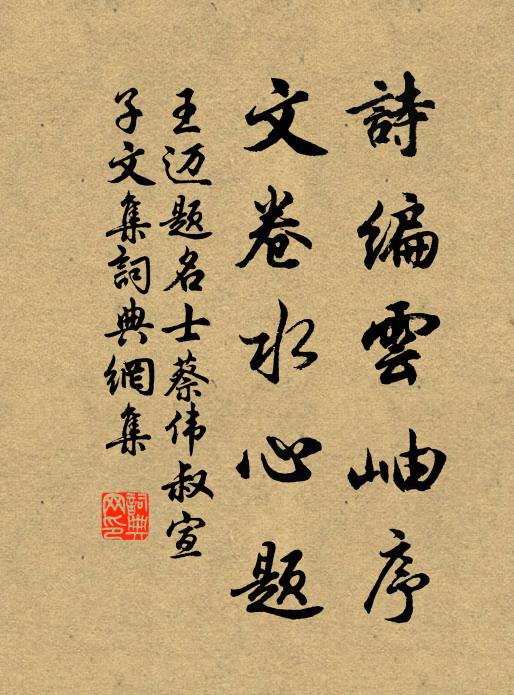 詩編雲岫序
文卷水心题
王迈题名士蔡伟叔宣
子文集詞典網集
詞典网印